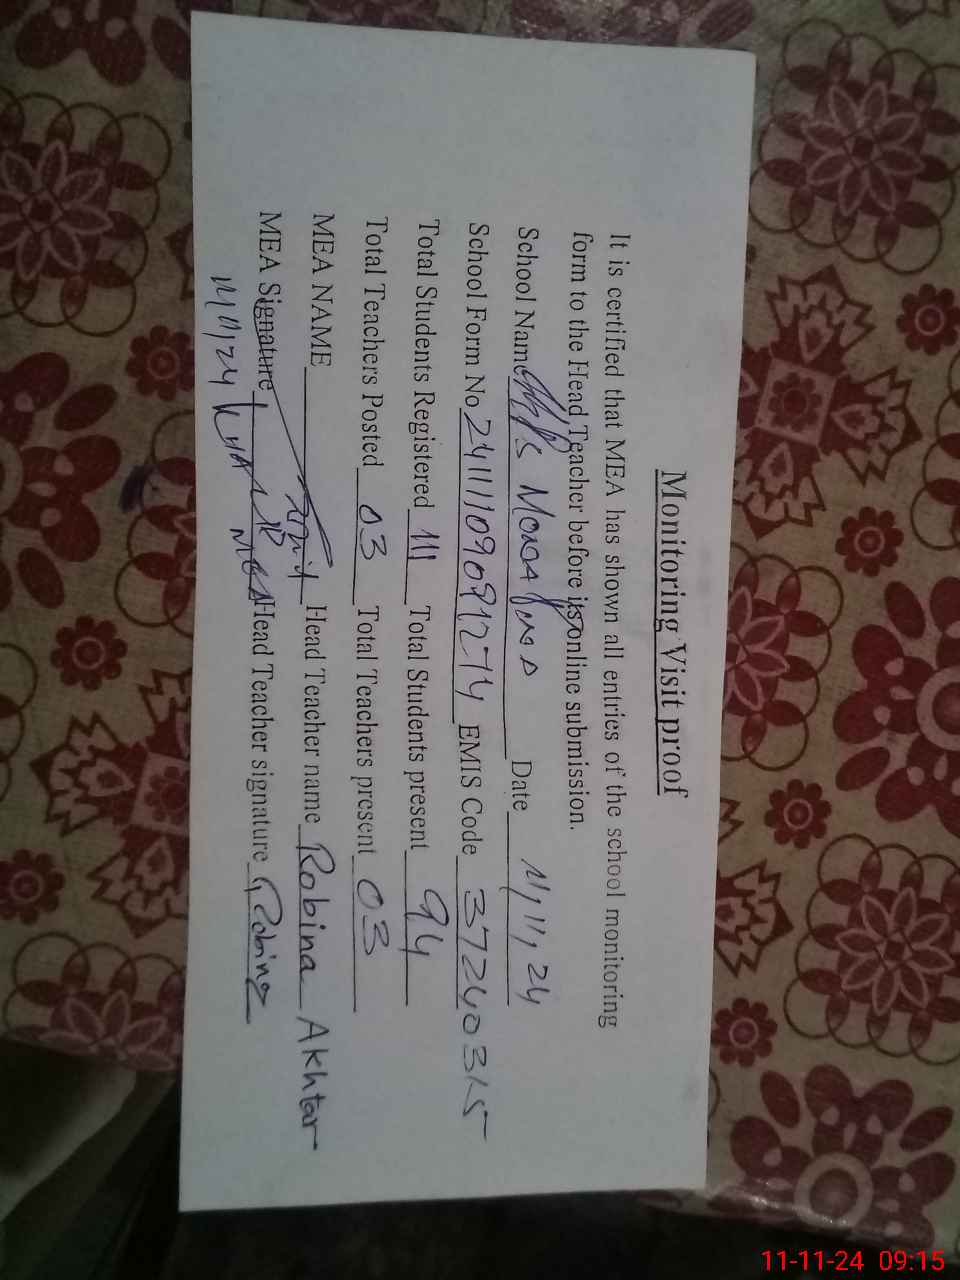 Monitoring Visit proof
It is certified that MEA has shown all entries of the school monitoring
form to the Head Teacher before its online submission.
School Name Date 11,11,24
School Form No 241111090912714 EMIS Code 37240315
Total Students Registered 111 Total Students present 94
Total Teachers Posted 03 Total Teachers present 03
MEA NAME Head Teacher name Robina Akhtar
MEA Signature Head Teacher signature Robina
11,11,24
11-11-24 09:15